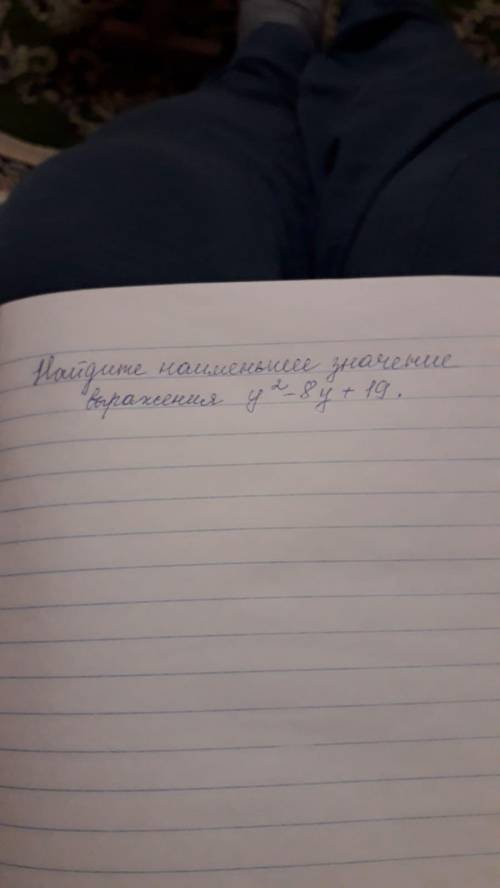 Найдите наименьшее значение
выражения y²-8y+19.